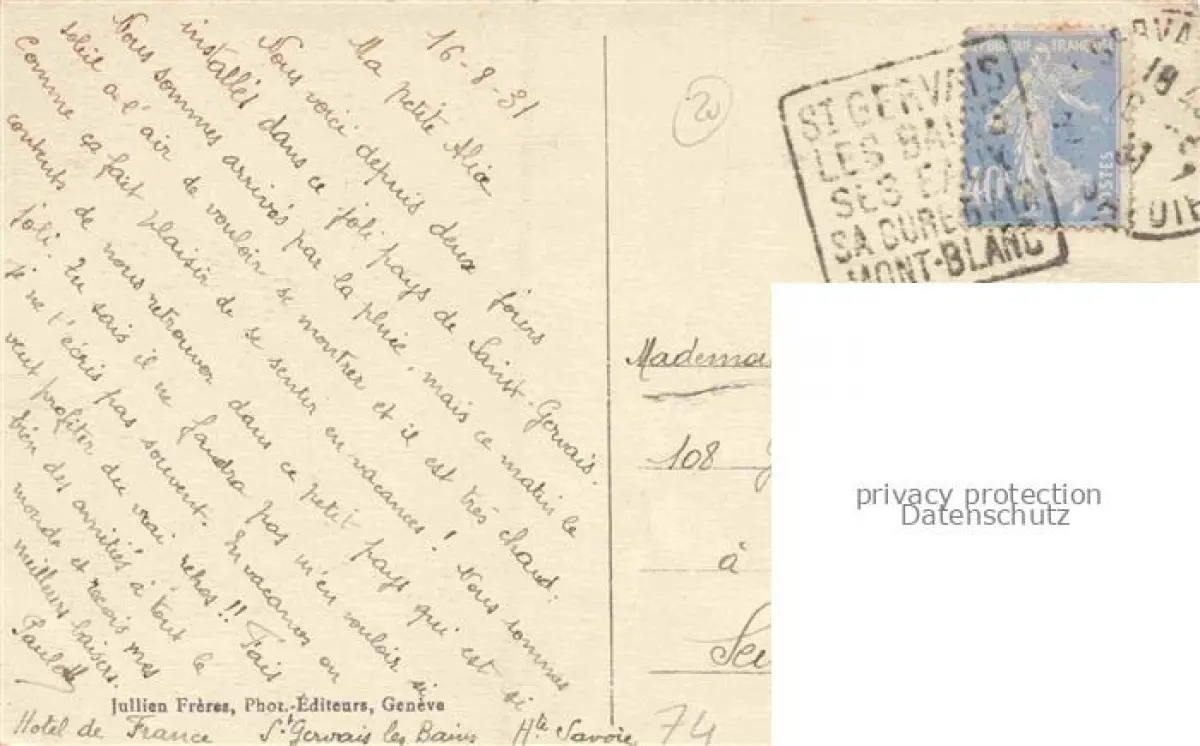 16-8-31
Ma petite Alice
Nous voici depuis deux jours
installés dans ce joli pays de Saint-Gervais.
Nous sommes arrivés par la pluie, mais ce matin le
soleil a l'air de vouloir se montrer et il est très chaud.
Comme ça fait plaisir de se sentir en vacances! Nous sommes
contents de nous retrouver dans ce petit pays qui est si
joli. Tu sais il ne faudra pas m'en vouloir si
je ne t'écris pas souvent. En vacances on
veut profiter du vrai repos!! Fais
bien des amitiés à tout le
monde et reçois mes
meilleurs baisers.
Jullien Frères, Phot.-Éditeurs, Genève
Hotel de France St Gervais les Bains Hte Savoie
20
ST GERVAIS
LES BAINS
SES EAUX
SA CURE D'AIR
MONT-BLANC
REPUBLIQUE FRANÇAISE
40c
POSTES
ERVA
18 4
31
OIE
Mademoi
108
à
Sei
74
privacy protection
Datenschutz